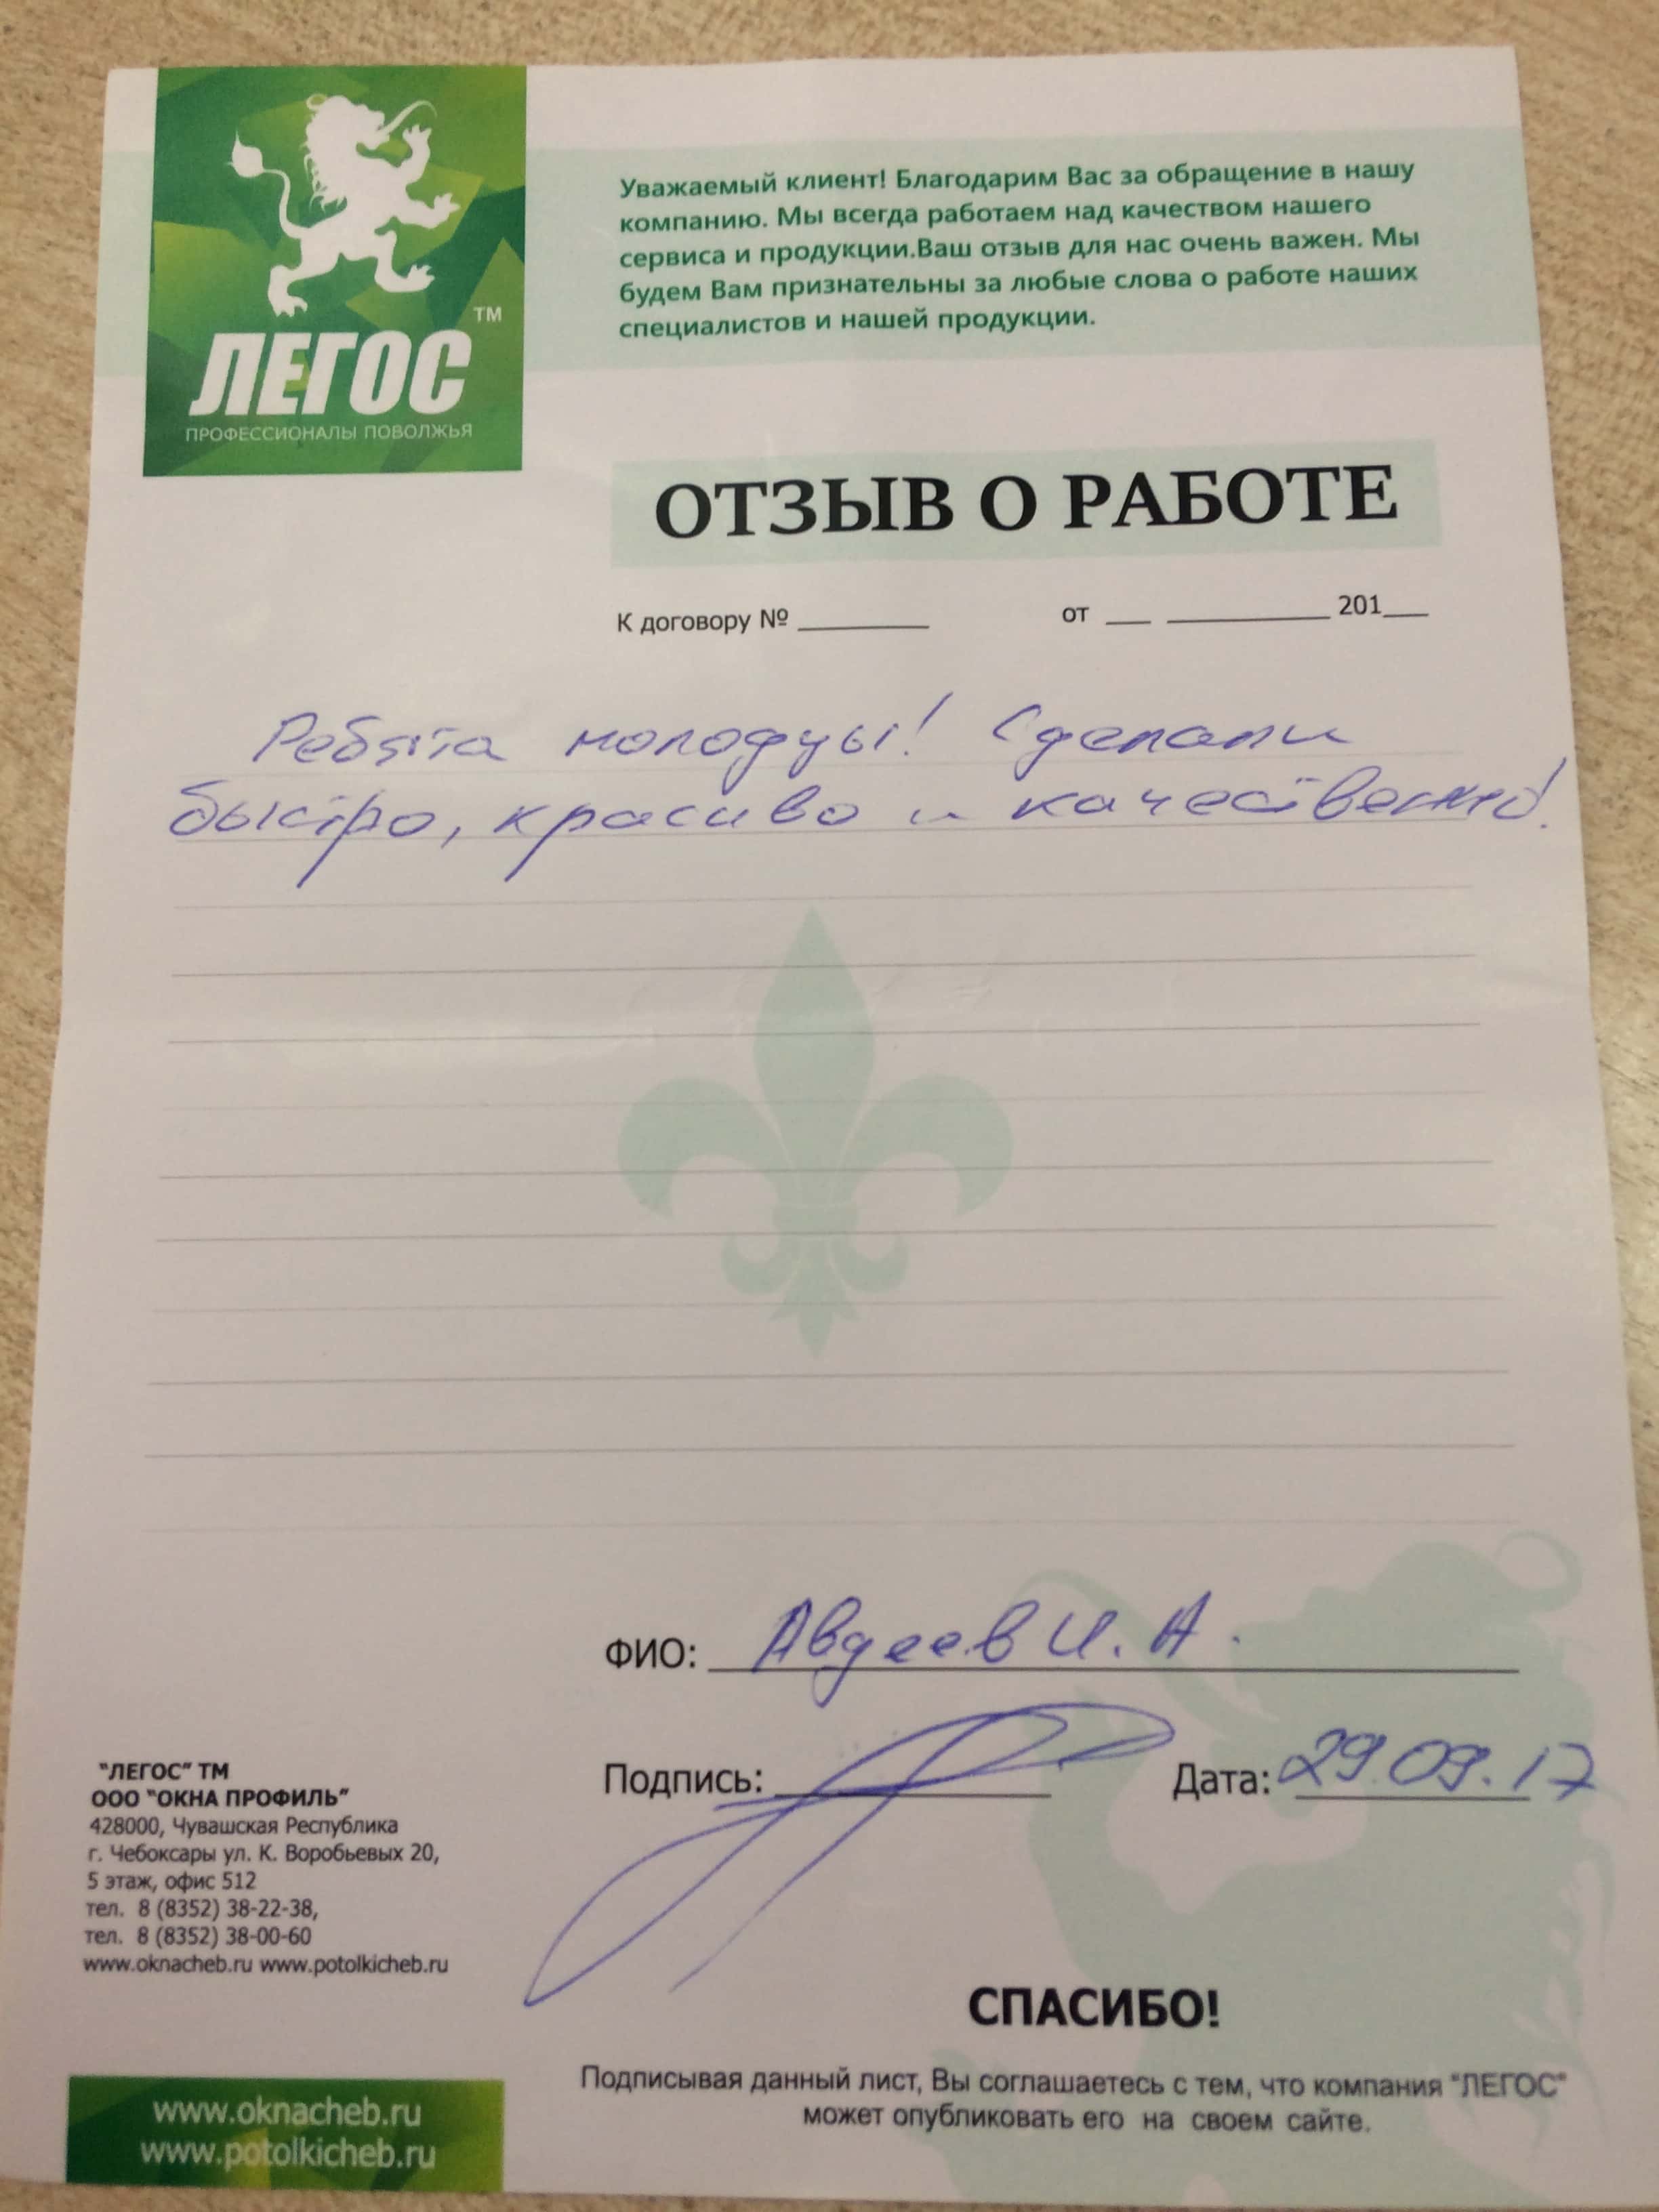 ЛЕГОС
TM
ПРОФЕССИОНАЛЫ ПОВОЛЖЬЯ
Уважаемый клиент! Благодарим Вас за обращение в нашу
компанию. Мы всегда работаем над качеством нашего
сервиса и продукции.Ваш отзыв для нас очень важен. Мы
будем Вам признательны за любые слова о работе наших
специалистов и нашей продукции.
ОТЗЫВ О РАБОТЕ
К договору № ______ от __ ______ 201__
Ребята молодцы! Сделали
быстро, красиво и качественно!
ФИО: Авдеев И. А.
Подпись: Дата: 29.09.17
"ЛЕГОС" ТМ
ООО "ОКНА ПРОФИЛЬ"
428000, Чувашская Республика
г. Чебоксары ул. К. Воробьевых 20,
5 этаж, офис 512
тел. 8 (8352) 38-22-38,
тел. 8 (8352) 38-00-60
www.oknacheb.ru www.potolkicheb.ru
СПАСИБО!
Подписывая данный лист, Вы соглашаетесь с тем, что компания "ЛЕГОС"
может опубликовать его на своем сайте.
www.oknacheb.ru
www.potolkicheb.ru